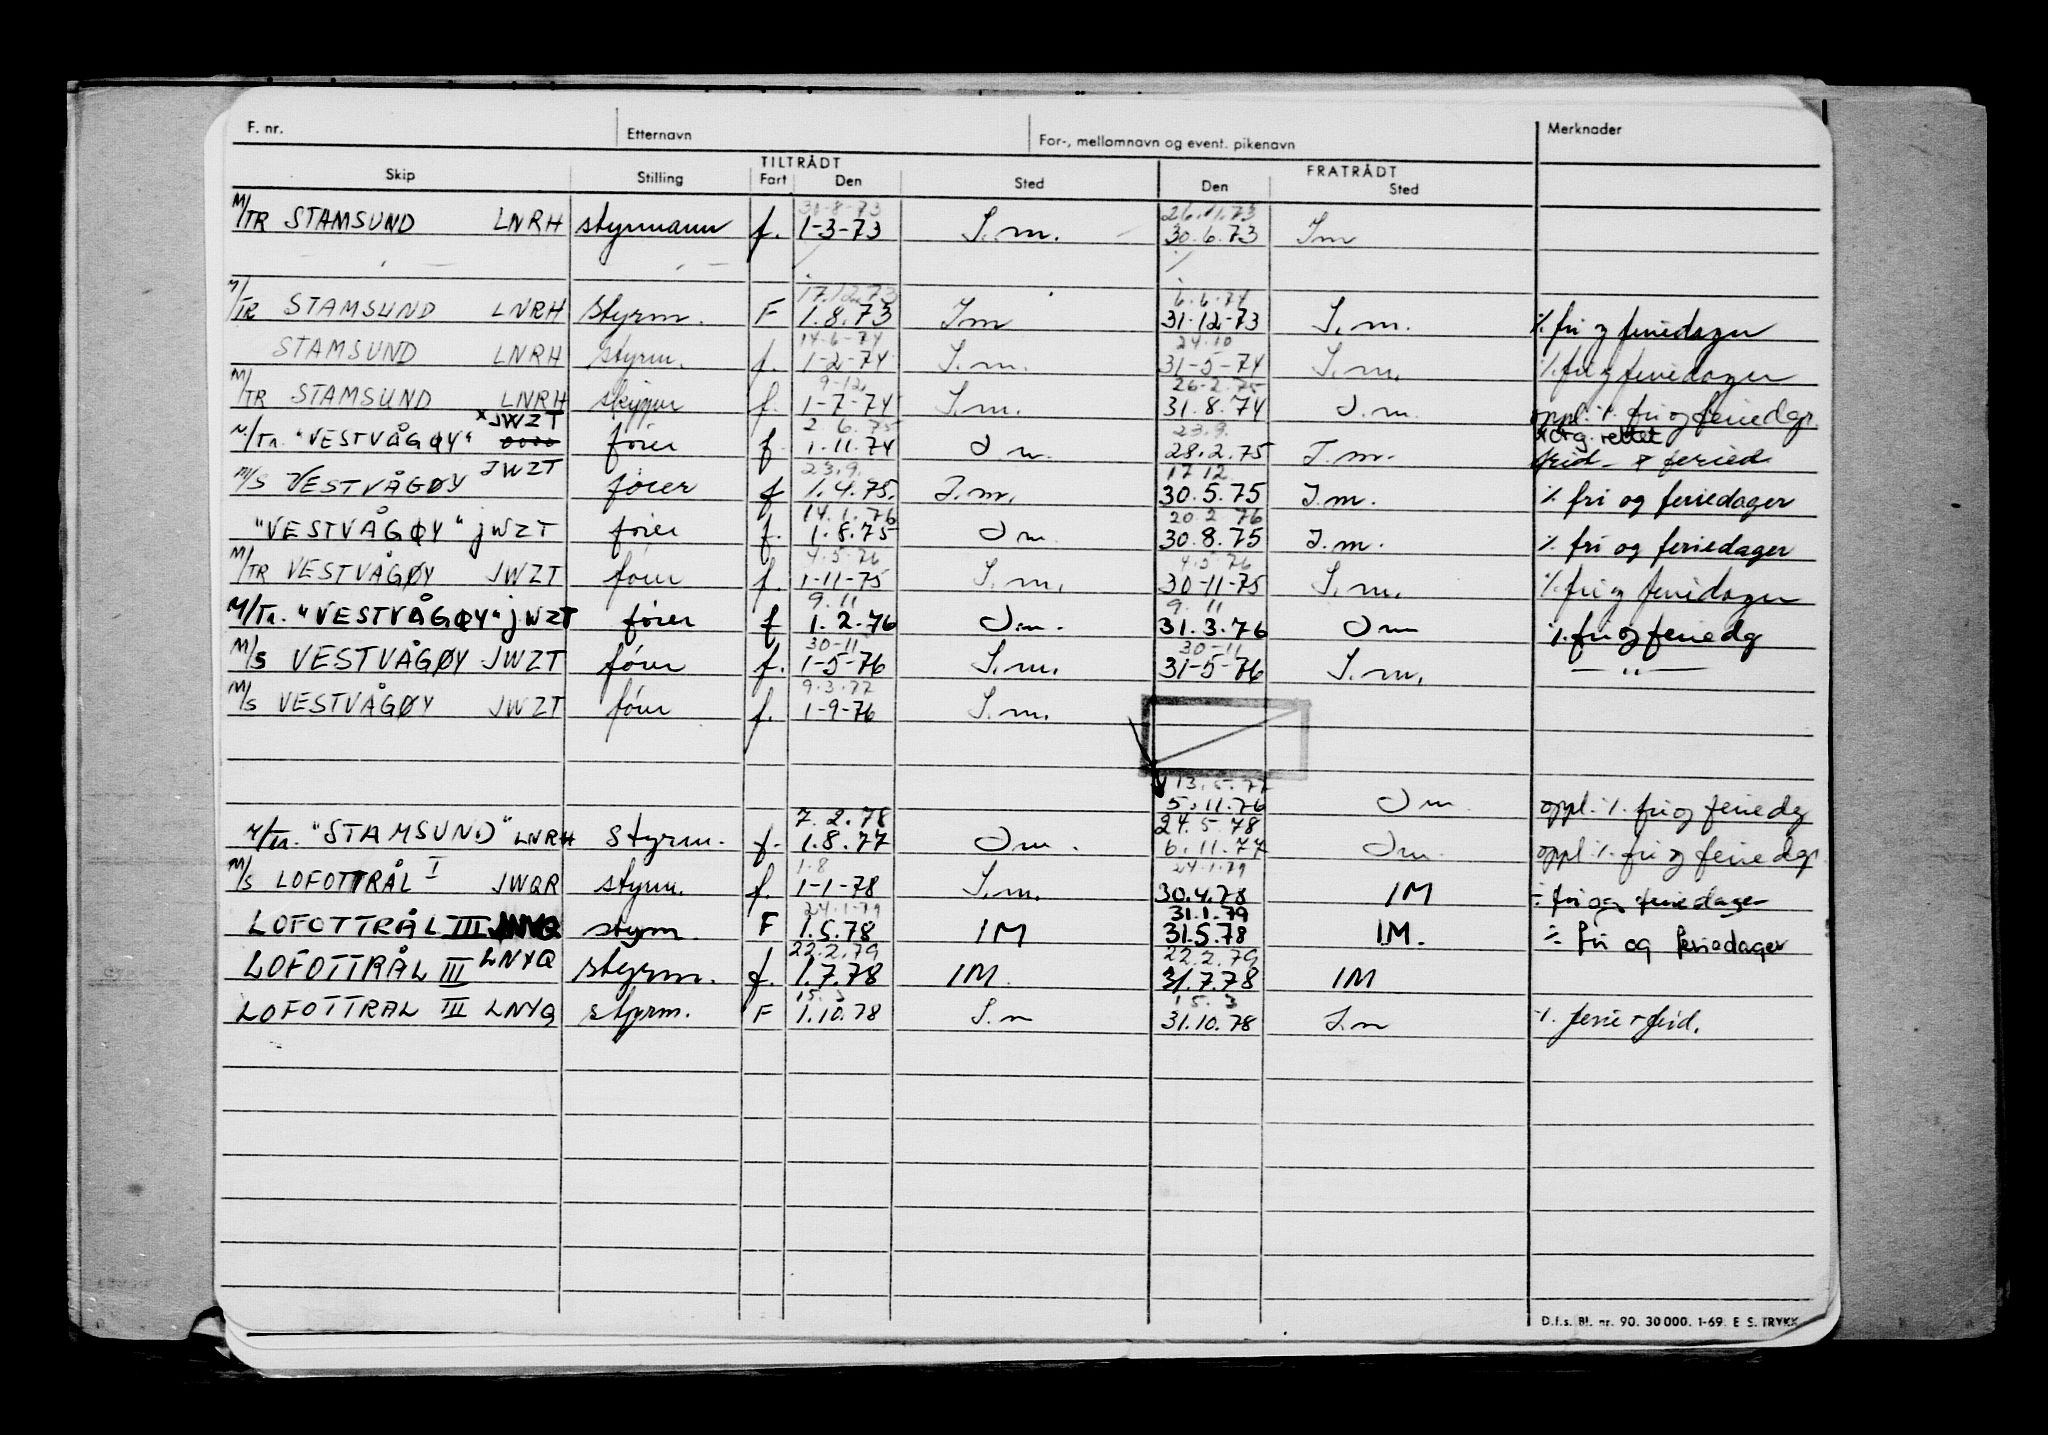 F. nr. Etternavn For-, mellomnavn og event. pikenavn Merknader
TILTRÅDT FRATRÅDT
Skip Stilling Fart Den Sted Den Sted
30-8-73 26.11.73
M/TR STAMSUND LNRH styrmann f. 1-3-73 I.m. 30.6.73 Im
17.12.73 6.6.74
M/TR STAMSUND LNRH styrm. F 1.8.73 Im 31.12.73 I.m. % fri og feriedager
14-6-74 24.10
STAMSUND LNRH styrm. f. 1-2-74 I.m. 31-5-74 I.m. % fri og feriedager
9-12 26-2.75
M/TR STAMSUND LNRH skipper f. 1-7-74 I.m. 31.8.74 I.m. oppl. % fri og feriedgr.
x JWZT 2.6.75 23.9. rettet
M/Tr. "VESTVÅGØY" fører f 1.11.74 I m. 28.2.75 I.m. frid- & feried
JWZT 23.9. 17 12
M/S VESTVÅGØY fører f 1.4.75. I.m. 30.5.75 I.m. % fri og feriedager
14.1.76 20.2 76
"VESTVÅGØY" jWZT fører f. 1.8.75 I m 30.8.75 I.m. % fri og feriedager
4-5-76 4.5.76
M/TR VESTVÅGØY JWZT fører f. 1-11-75 I.m. 30-11-75 I.m. % fri og feriedager
9.11 9. 11
M/Tr. "VESTVÅGØY" jWZT fører f 1.2.76 I m. 31.3.76 I m % fri og feriedg
30-11 30-11
M/S VESTVÅGØY JWZT fører f. 1-5-76 I.m. 31-5-76 I.m. — " —
9.3.77
M/S VESTVÅGØY JWZT fører f. 1-9-76 I.m.
13.5.77
5.11.76 I m. oppl. % fri og feriedg
7.2.78 24.5.78
M/Tr. "STAMSUND" LNRH Styrm. f. 1.8.77 I m. 6.11.77 I m. oppl. % fri og feriedgr
1.8 24.1.79
M/S LOFOTTRÅL I JWQR styrm. f. 1-1-78 I.m. 30.4.78 IM ÷ fri og feriedager
24.1.79 31.1.79
LOFOTTRÅL III styrm. F 1.5.78 IM 31.5.78 IM. % fri og feriedager
22.2.79 22.2.79
LOFOTTRÅL III LNYQ styrm. f. 1.7.78 IM. 31.7.78 IM
15. 3 15. 3
LOFOTTRÅL III LNYQ styrm. F 1.10.78 I.m 31.10.78 I.m % ferie + frid.
D.f.s. Bl. nr. 90. 30 000. 1-69. E. S. TRYKK